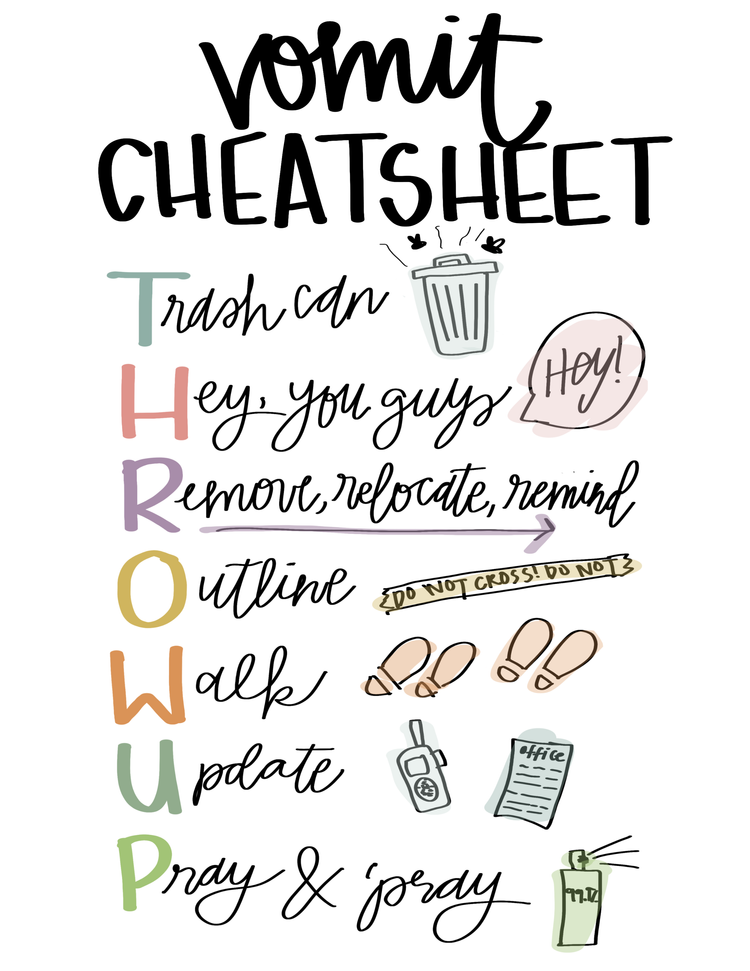 vomit
CHEATSHEET
Trash can
Hey, you guys
HEY!
Remove, relocate, remind
Outline
DO NOT CROSS! DO NOT
Walk
Update
office
Pray & 'pray